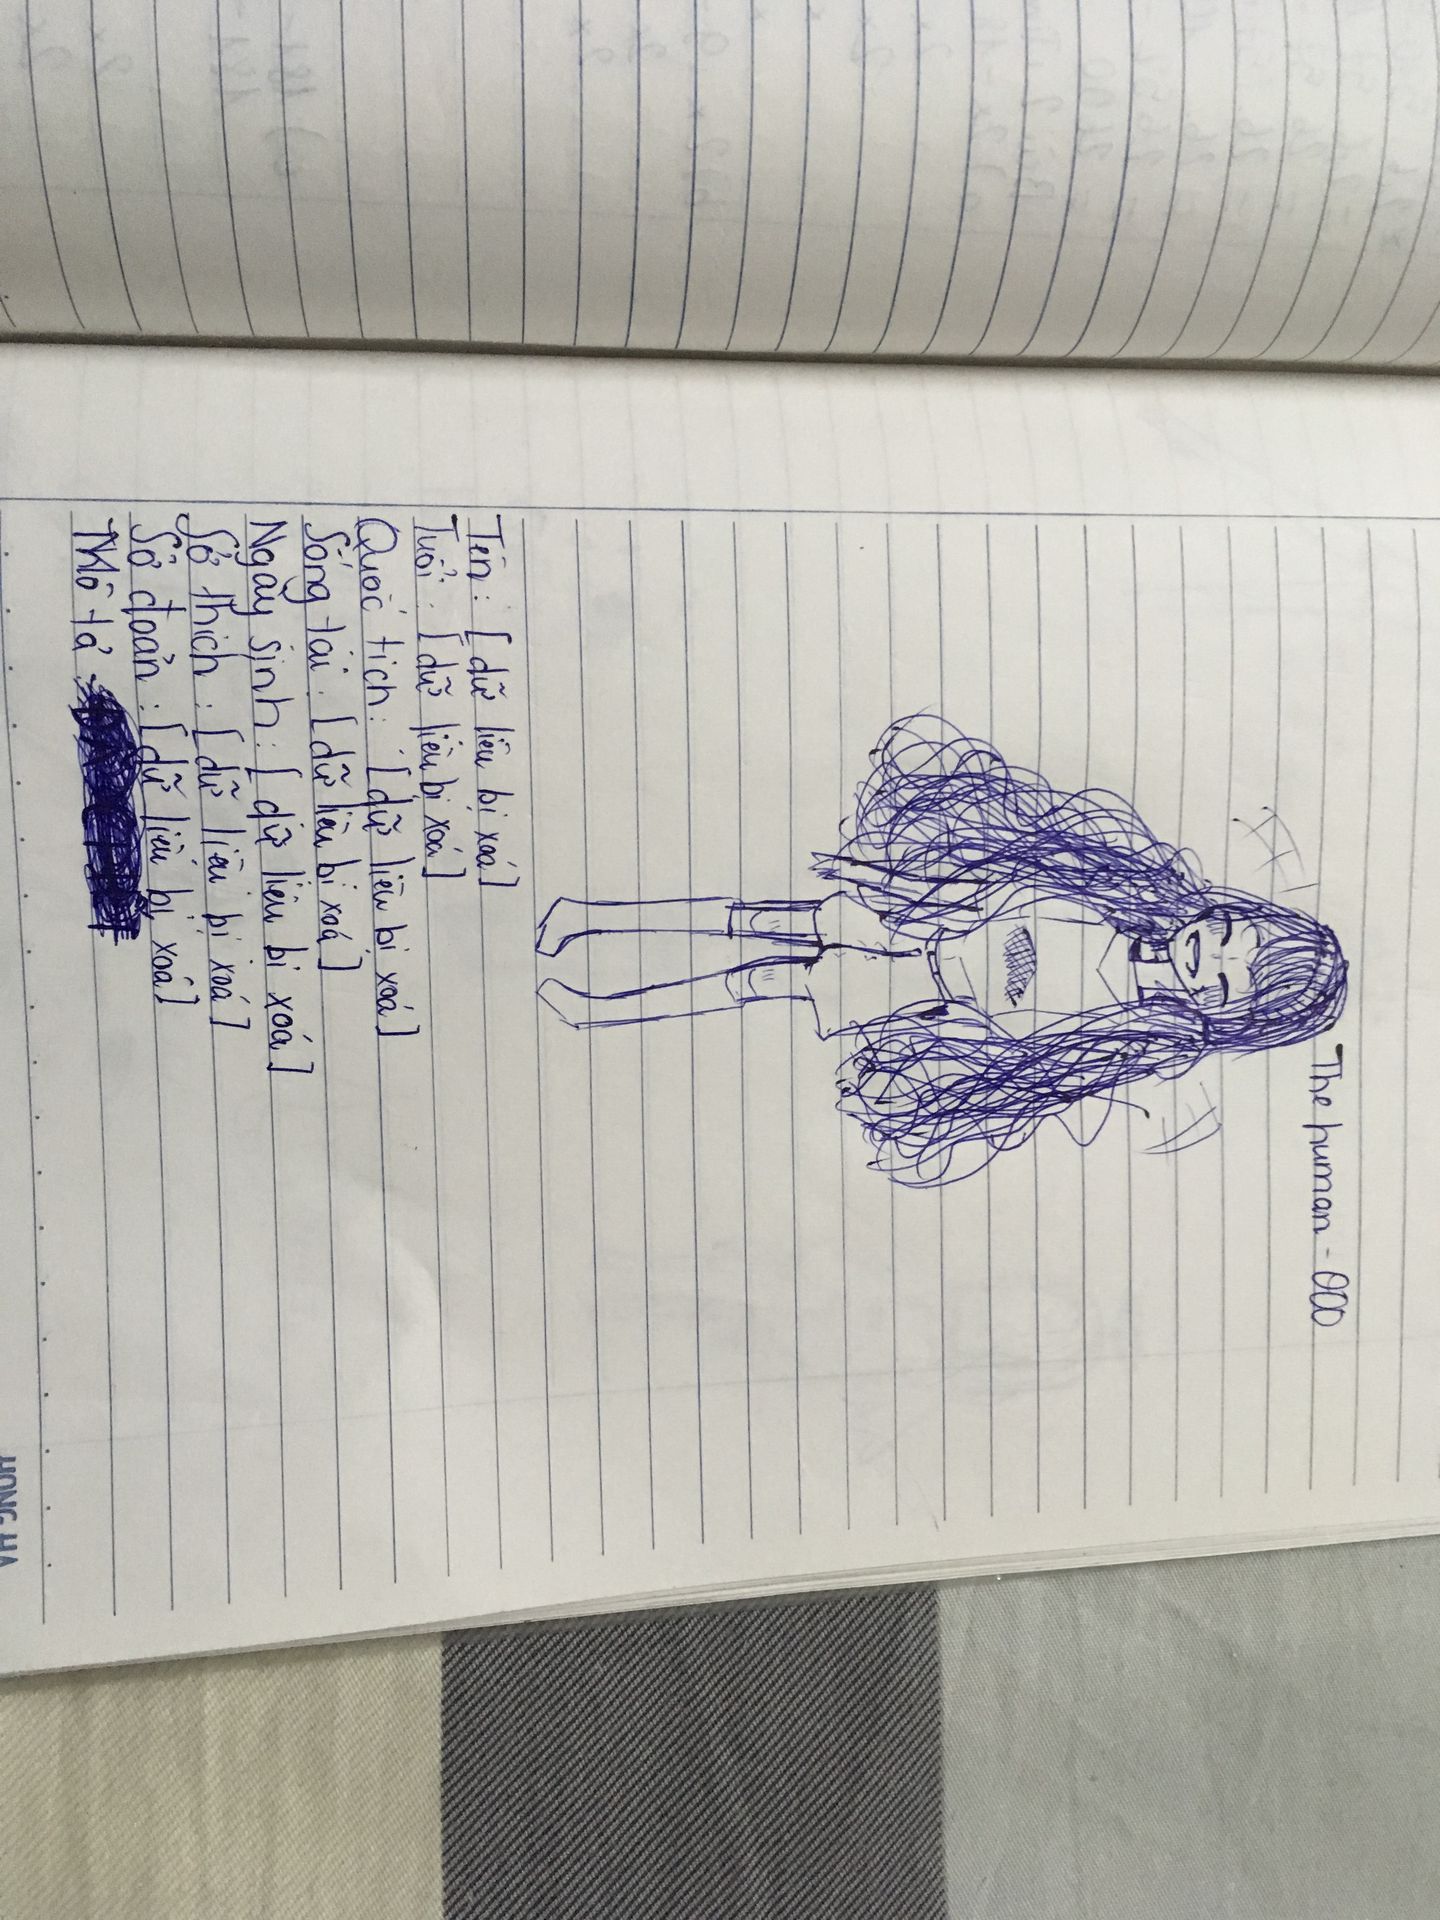 The human - 000
Tên : [ dữ liệu bị xoá ]
Tuổi : [ dữ liệu bị xoá ]
Quốc tịch : [ dữ liệu bị xoá ]
Sống tại : [ dữ liệu bị xoá ]
Ngày sinh : [ dữ liệu bị xoá ]
Sở thích : [ dữ liệu bị xoá ]
Sở đoản : [ dữ liệu bị xoá ]
Mô tả :
HONG HA